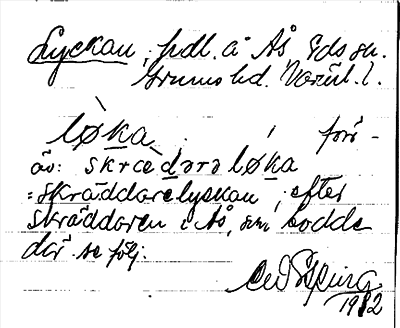 Lyckan, hdl. å Ås, Eds sn.
Grums hd. Värml. l.
lø̀ka förr -
äv: skrædarəløka
= skräddarelyckan, efter
skräddaren i Ås, som bodde
där se följ.
1912